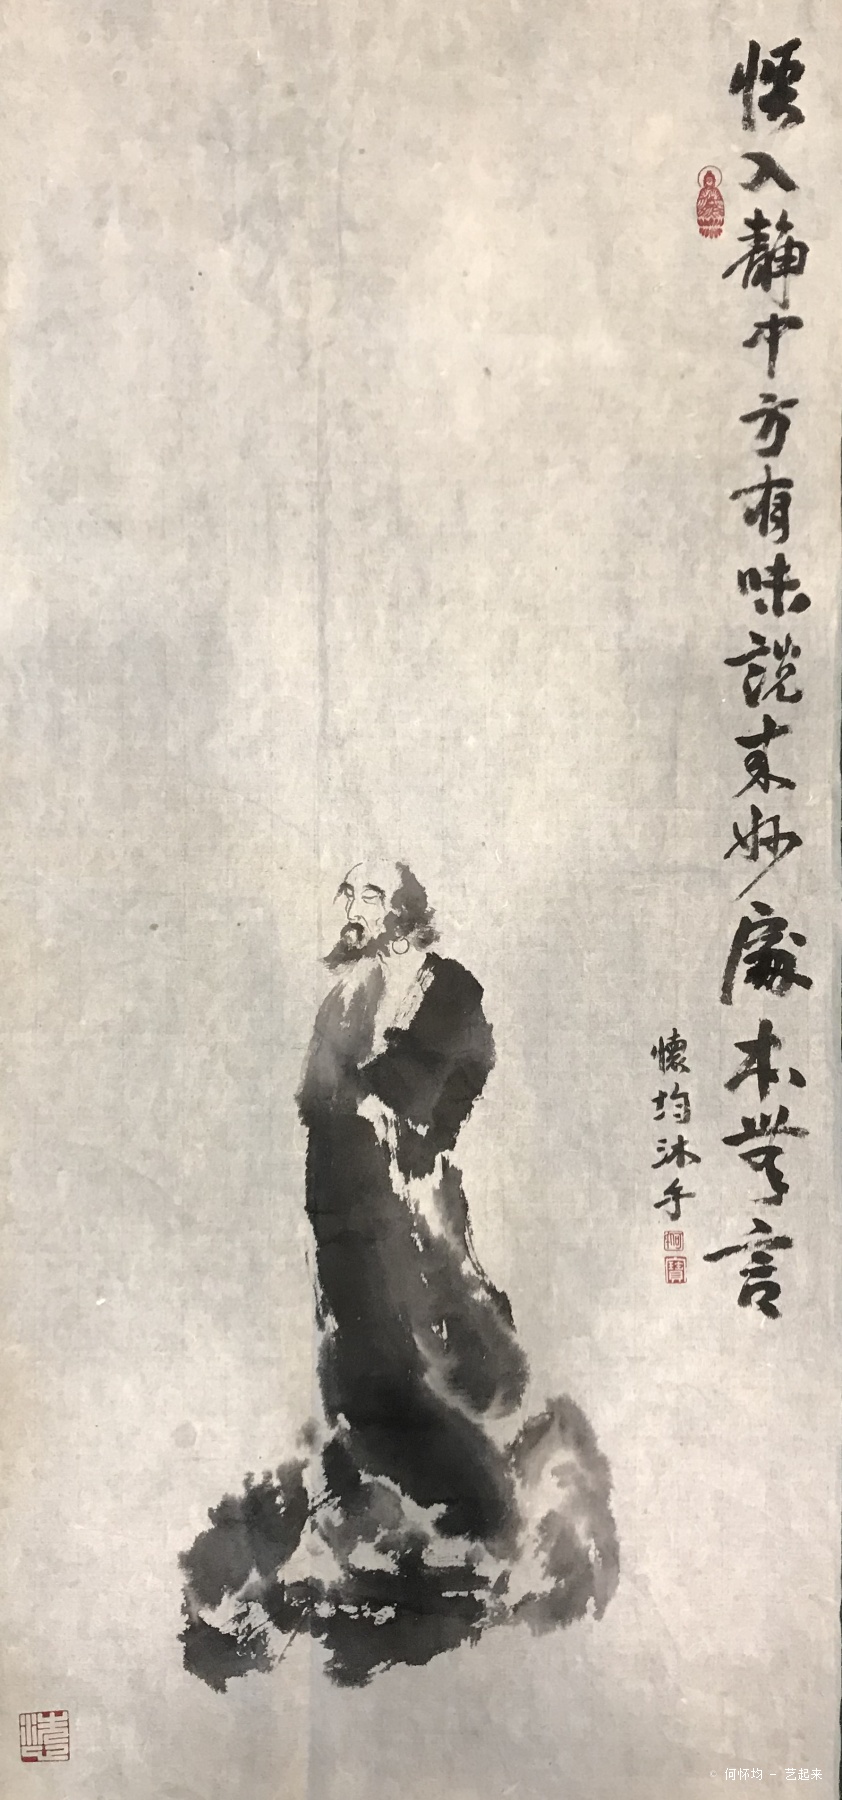 悟入静中方有味説来妙處本無言
懷均沐手
© 何怀均 - 艺起来